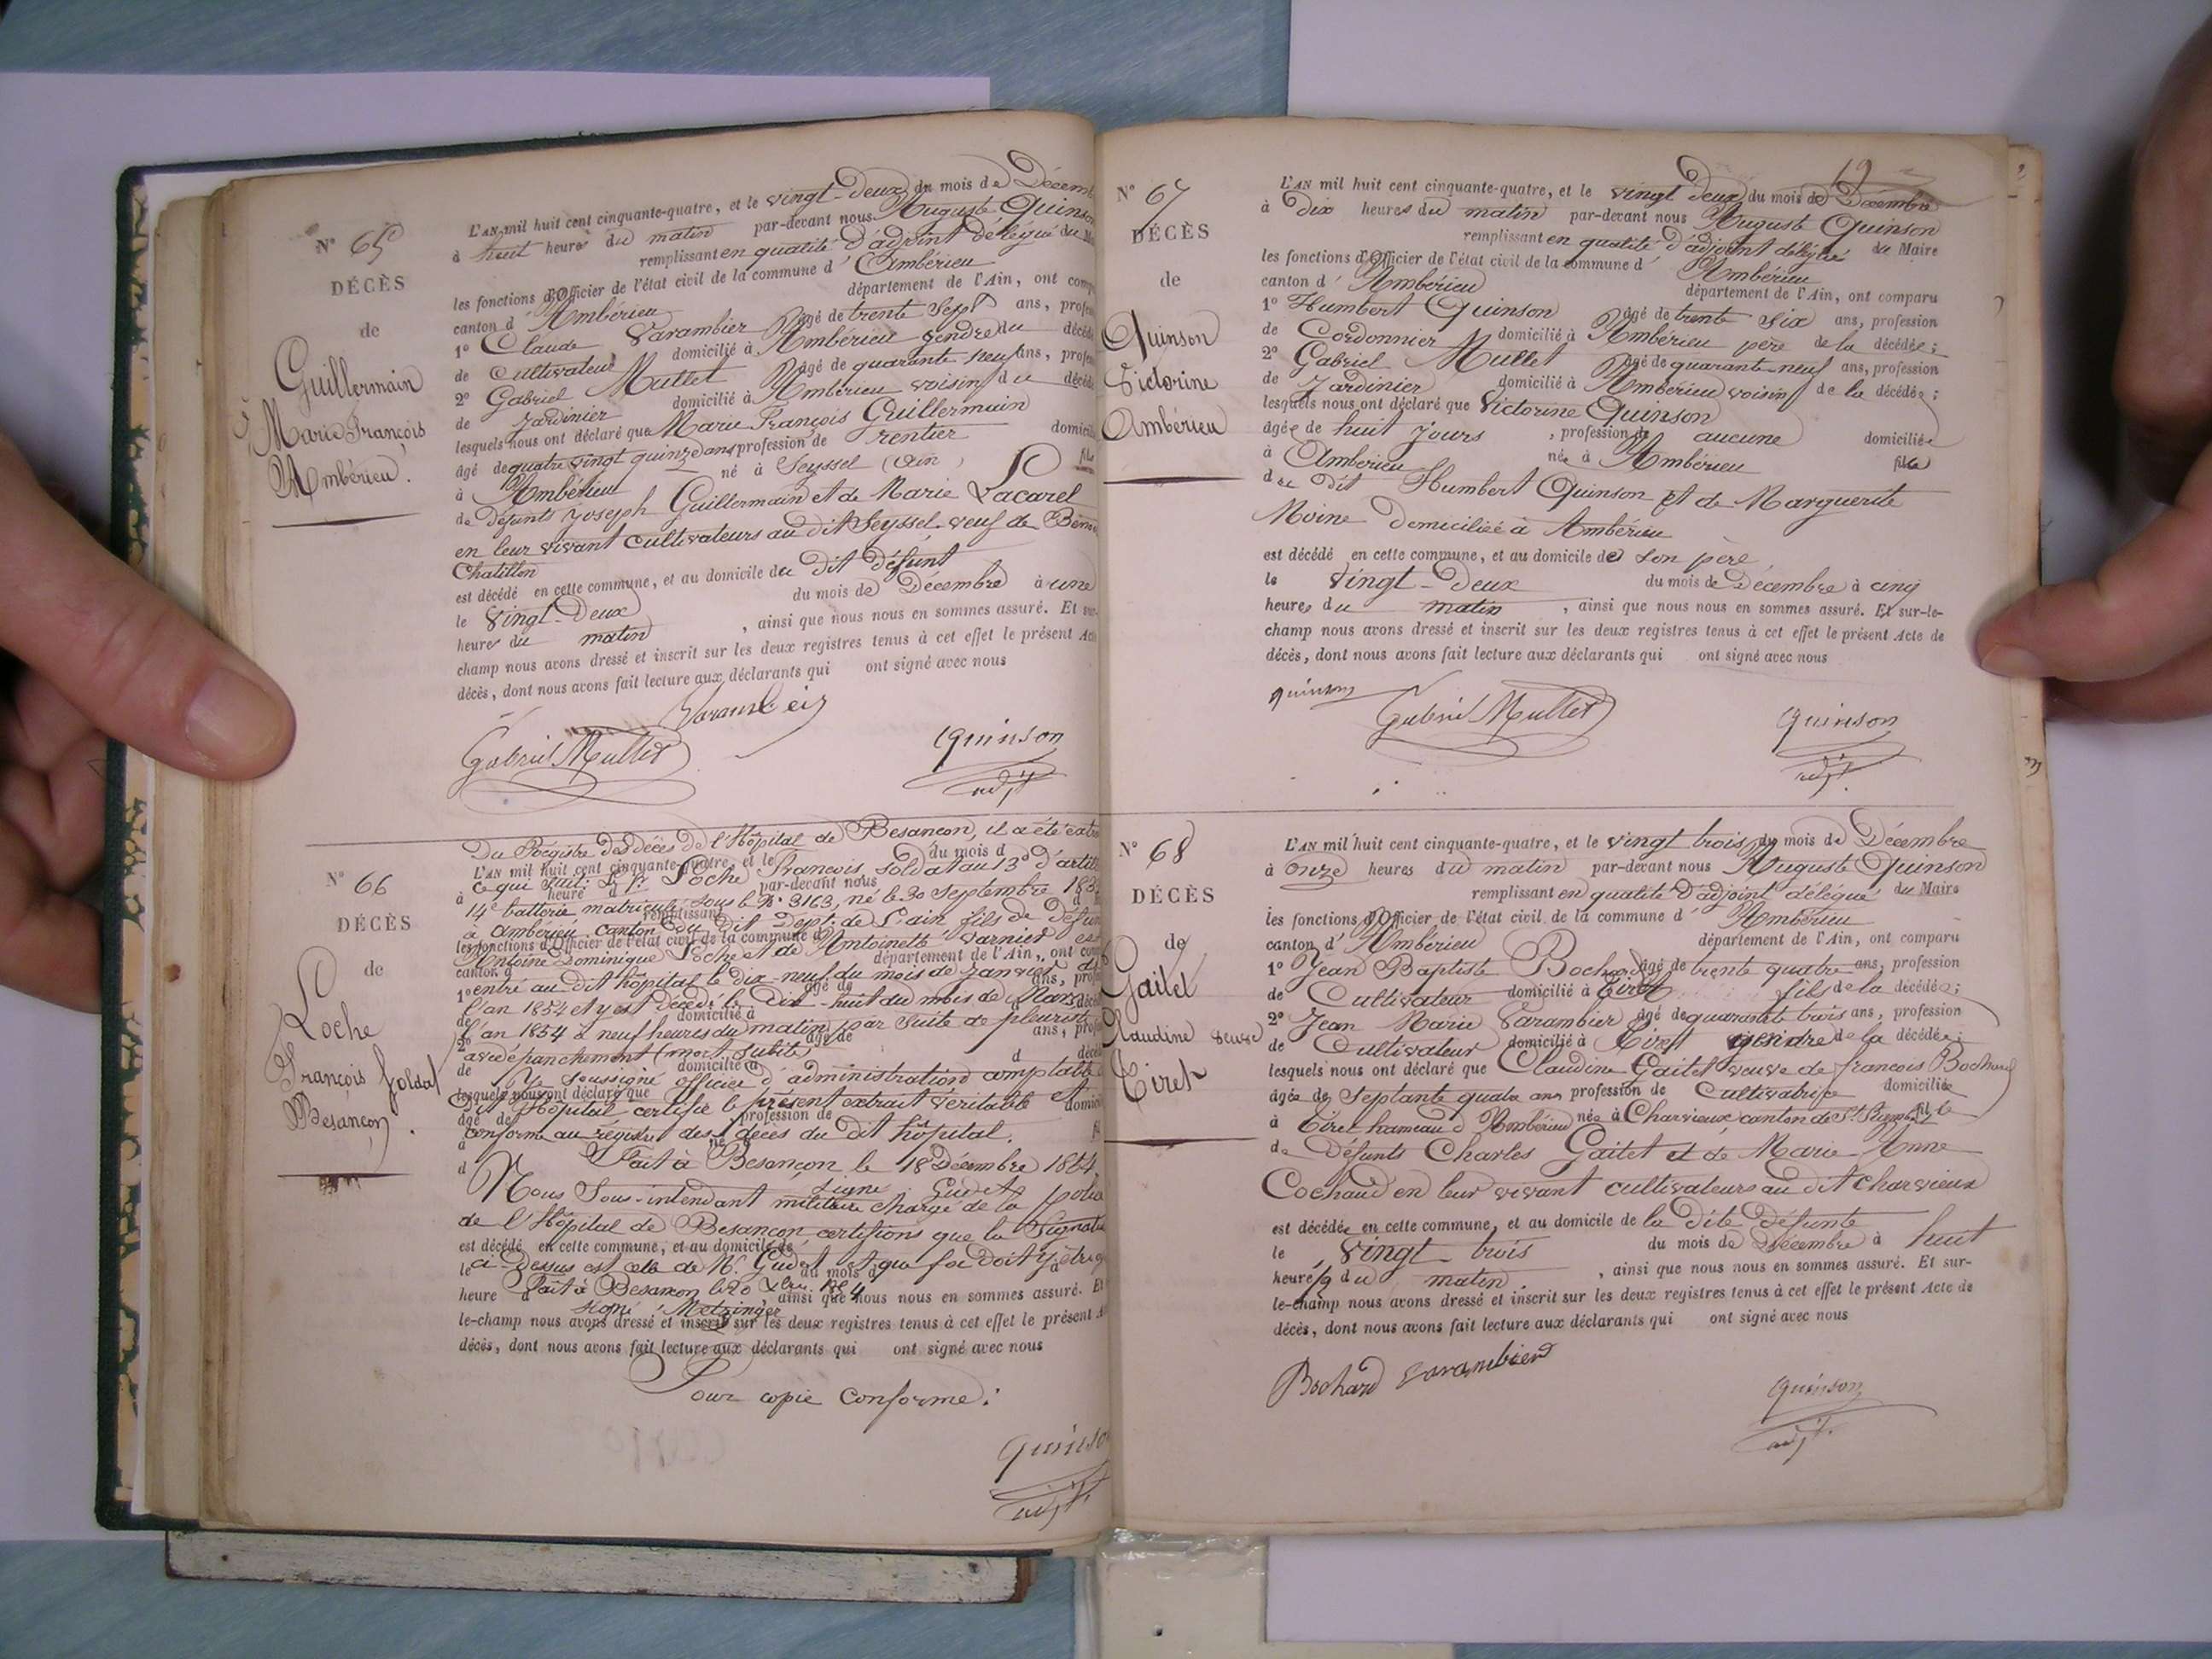 N° 65
DÉCÈS
de
Guillermain
Marie François
Ambérieu.
L'AN mil huit cent cinquante-quatre, et le vingt-deux du mois de Décem
à huit heures du matin par-devant nous Auguste Quinson
remplissant en qualité d'adjoint délégué du
les fonctions d'Officier de l'état civil de la commune d' Ambérieu
canton d' Ambérieu département de l'Ain, ont
1° Claude Varambier âgé de trente sept ans,
de Cultivateur domicilié à Ambérieu gendre du
2° Gabriel Mullet âgé de quarante neuf ans,
de Jardinier domicilié à Ambérieu voisin du
lesquels nous ont déclaré que Marie François Guillermain
âgé de quatre vingt quinze ans profession de rentier
à Ambérieu né à Seyssel (Ain)
de défunts Joseph Guillermain et de Marie Lacarel
en leur vivant cultivateurs au dit Seyssel veuf de
Chatillon
est décédé en cette commune, et au domicile du dit défunt
le vingt-deux du mois de Décembre à une
heure du matin, ainsi que nous nous en sommes assuré. Et sur-
champ nous avons dressé et inscrit sur les deux registres tenus à cet effet le présent Acte
décès, dont nous avons fait lecture aux déclarants qui ont signé avec nous
Gabriel Mullet
Quinson
adjt
N° 66
DÉCÈS
de
Loche
François soldat
Besançon.
Du Registre des décès de l'Hôpital de Besançon, il a été
L'AN mil huit cent cinquante-quatre, et le du mois d
ce qui suit: Loche François, soldat au 13e d'artill
à heure d par-devant nous
14e batterie matricule sous le N° 3163, né le 30 septembre
remplissant
à Ambérieu canton du dit dépt. de l'Ain fils de défunt
les fonctions d'Officier de l'état civil de la commune d
Antoine Dominique Loche et de Antoinette Varnier
canton d département de l'Ain, ont
1° entré au dit hôpital le dix-neuf du mois de Janvier de
âgé de ans,
l'an 1854 et y est décédé le dix-huit du mois de Mars
de domicilié à
l'an 1854 à neuf heures du matin par suite de pleurésie
2° âgé de ans,
avec épanchement (mort subite)
de domicilié à
Je soussigné officier d'administration comptable
lesquels nous ont déclaré que
du Hôpital certifie le présent extrait véritable et
âgé de profession de
conforme au registre des décès du dit hôpital.
à né à
d Fait à Besançon le 18 Décembre 1854.
signé Gudet
Nous Sous-intendant militaire chargé de la police
de l'Hôpital de Besançon certifions que la signature
est décédé en cette commune, et au domicile de
ci-dessus est celle de M. Gudet et que foi doit y être
le du mois d à
Fait à Besançon le 20 Xbre 1854
heure d ainsi que nous nous en sommes assuré. Et
signé Metzinger
le-champ nous avons dressé et inscrit sur les deux registres tenus à cet effet le présent
décès, dont nous avons fait lecture aux déclarants qui ont signé avec nous
Pour copie conforme:
Quinson
adjt.
19
N° 67
DÉCÈS
de
Quinson
Victorine
Ambérieu
L'AN mil huit cent cinquante-quatre, et le vingt deux du mois de Décembre
à dix heures du matin par-devant nous Auguste Quinson
remplissant en qualité d'adjoint délégué du Maire
les fonctions d'Officier de l'état civil de la commune d' Ambérieu
canton d' Ambérieu département de l'Ain, ont comparu
1° Humbert Quinson âgé de trente six ans, profession
de Cordonnier domicilié à Ambérieu père de la décédée;
2° Gabriel Mullet âgé de quarante-neuf ans, profession
de Jardinier domicilié à Ambérieu voisin de la décédée;
lesquels nous ont déclaré que Victorine Quinson
âgée de huit jours, profession de aucune domiciliée
à Ambérieu née à Ambérieu fille
du dit Humbert Quinson et de Marguerite
Moine domiciliée à Ambérieu
est décédé en cette commune, et au domicile de son père
le vingt-deux du mois de Décembre à cinq
heures du matin, ainsi que nous nous en sommes assuré. Et sur-le-
champ nous avons dressé et inscrit sur les deux registres tenus à cet effet le présent Acte de
décès, dont nous avons fait lecture aux déclarants qui ont signé avec nous
quinson
Gabriel Mullet
Quinson
adjt.
N° 68
DÉCÈS
de
Gaitet
Claudine veuve
Tiret
L'AN mil huit cent cinquante-quatre, et le vingt trois du mois de Décembre
à onze heures du matin par-devant nous Auguste Quinson
remplissant en qualité d'adjoint délégué du Maire
les fonctions d'Officier de l'état civil de la commune d' Ambérieu
canton d' Ambérieu département de l'Ain, ont comparu
1° Jean Baptiste Bochard âgé de trente quatre ans, profession
de Cultivateur domicilié à Tiret fils de la décédée;
2° Jean Marie Varambier âgé de quarante trois ans, profession
de Cultivateur domicilié à Tiret gendre de la décédée;
lesquels nous ont déclaré que Claudine Gaitet veuve de francois Bochard
âgée de septante quatre ans profession de Cultivatrice domiciliée
à Tiret hameau d'Ambérieu née à Charvieux canton de St. fille
de défunts Charles Gaitet et de Marie Anne
Cochaud en leur vivant cultivateurs au dit Charvieux
est décédée en cette commune, et au domicile de la dite défunte
le vingt-trois du mois de Décembre à huit
heure 1/2 du matin, ainsi que nous nous en sommes assuré. Et sur-
le-champ nous avons dressé et inscrit sur les deux registres tenus à cet effet le présent Acte de
décès, dont nous avons fait lecture aux déclarants qui ont signé avec nous
Bochard Varambier
Quinson
adjt.